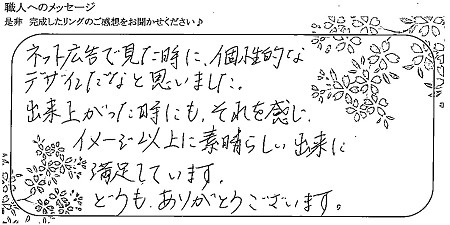 職人へのメッセージ
是非 完成したリングのご感想をお聞かせください♪
ネット広告で見た時に、個性的な
デザインだなと思いました。
出来上がった時にも、それを感じ、
イメージ以上に素晴らしい出来に
満足しています。
どうも、ありがとうございます。